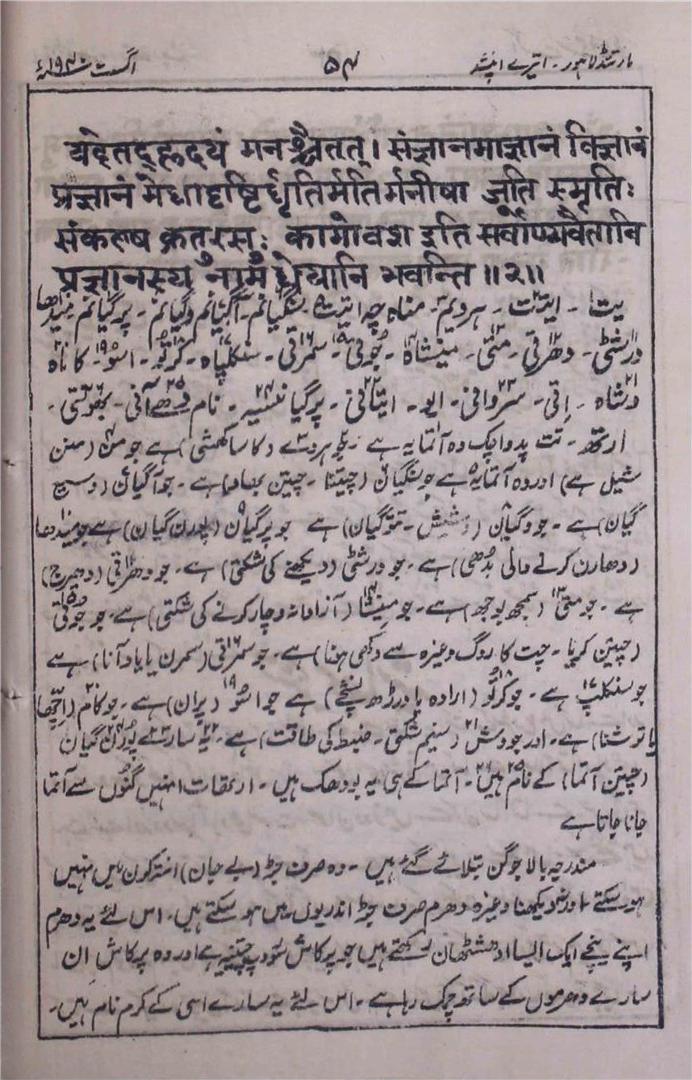 مارتنڈ لاہور۔ ایترے اپنشد ۵۴ اگست ۱۹۴۰ء
यदेतद्हृदयं मनश्चैतत्। संज्ञानमाज्ञानं विज्ञानं
प्रज्ञानं मेधादृष्टिर्धृतिर्मतिर्मनीषा जूति स्मृतिः
संकल्प क्रतुरसः कामोवश इति सर्वाण्यवैतानि
प्रज्ञानस्य नामधेयानि भवन्ति ॥२॥
یت۔ ایتت۔ ہردیم۔ مناہ چہ ایتت۔ سنگیانم۔ آگیانم وگیانم۔ پرگیانم۔ میدھا
درشٹی۔ دھرتی۔ متی۔ مینشاہ۔ جوتی۔ سمرتی۔ سنکلپاہ۔ کرتو۔ اسو۔ کاماہ
وشاہ۔ اتی۔ سروانی۔ ایو۔ ایتانی۔ پرگیانسیہ۔ نام دھے آنی۔ بھونتی۔
ارتھ۔ تت پدواچک وہ آتما یہ ہے۔ جو ہردے کا ساکھشی) ہے جو من (منن
شیل ہے) اور وہ آتما یہ ہے جو سنگیان (چیتنا۔ چیتن بھاو) ہے۔ جو آگیان (وسیع
گیان) ہے۔ جو وگیان (وشیش۔ تتوگیان) ہے جو پرگیان (پورن گیان) ہے جو میدھا
(دھارن کرنے والی بدھی) ہے۔ جو درشٹی (دیکھنے کی شکتی) ہے۔ جو دھرتی (دھیرج)
ہے۔ جو متی (سمجھ بوجھ) ہے۔ جو مینشا (آزادانہ وچار کرنے کی شکتی) ہے۔ جو جوتی
(چیتن کریا۔ چت کا روگ وغیرہ سے دکھی ہونا) ہے۔ جو سمرتی (سمرن یا یاد آنا) ہے
جو سنکلپ ہے۔ جو کرتو (ارادہ یا درڑھ نشچے) ہے جو اسو (پران) ہے۔ جو کام (اچھا
یا ترشنا) ہے۔ اور جو وش (سنیم شکتی۔ ضبط کی طاقت) ہے۔ یہ سارے پورن گیان
(چیتن آتما) کے نام ہیں۔ آتما کے ہی یہ بودھک ہیں۔ ارتھات انہیں گنوں سے آتما
جانا جاتا ہے
مندرجہ بالا جو گن بتلائے گئے ہیں۔ وہ صرف جڑ (بے جان) انتہ کرن میں نہیں
ہو سکتے۔ اور نہ دیکھنا وغیرہ دھرم صرف جڑ اندریوں میں ہو سکتے ہیں۔ اس لئے یہ دھرم
اپنے نیچے ایک ایسا ادھشٹھان رکھتے ہیں جو پرکاش سروپ چیتنیہ ہے اور وہ پرکاش ان
سارے دھرموں کے ساتھ چمک رہا ہے۔ اس لئے یہ سارے اسی کے کرم نام ہیں۔